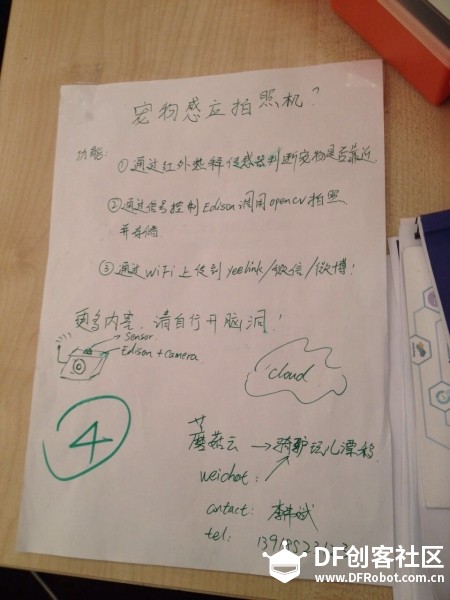 宠物感应拍照机？
功能：
①通过红外热释传感器判断宠物是否靠近
②通过信号控制Edison调用opencv拍照
并存储
③通过WiFi上传到yeelink/微信/微博！
更多内容，请自行开脑洞！
Sensor
Edison + Camera
cloud
4
蘑菇云 → 骑驴玩儿漂移
weichat:
contact:
tel:
DF创客社区
www.DFRobot.com.cn